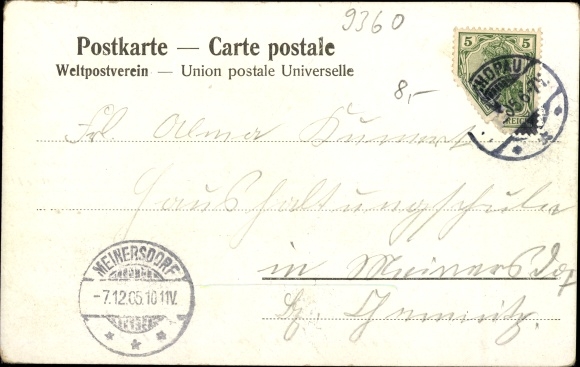 9360
Postkarte — Carte postale
Weltpostverein — Union postale Universelle
8,-
5 5
REICH
Frl. Alma Kunert
Haushaltungsschule
in Meinersdorf
b. Chemnitz.
MEINERSDORF
-7.12.05.10-11V.